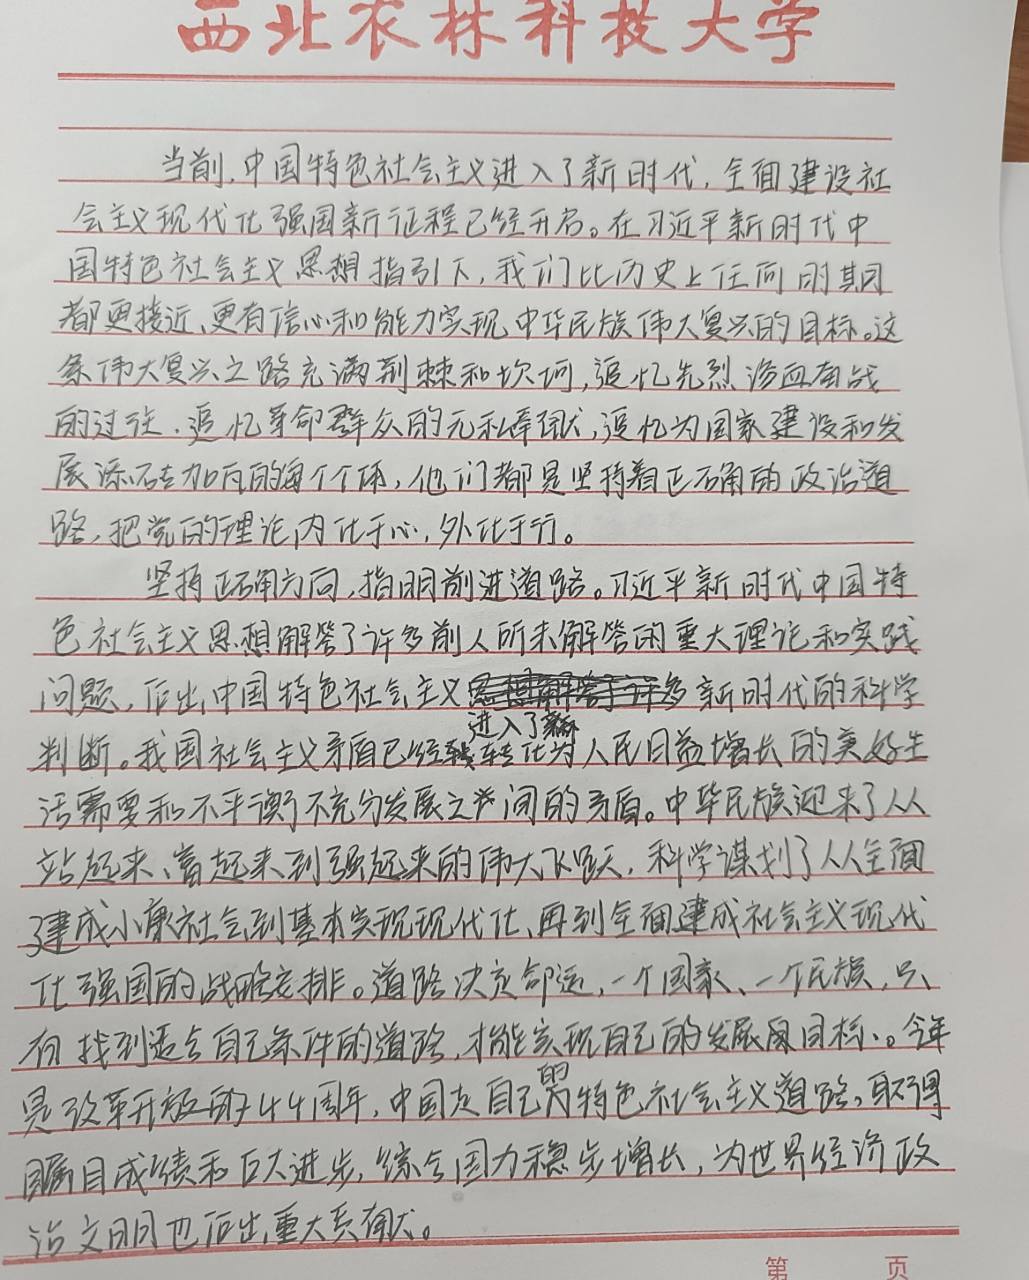 西北农林科技大学
当前,中国特色社会主义进入了新时代,全面建设社
会主义现代化强国新征程已经开启。在习近平新时代中
国特色社会主义思想指引下,我们比历史上任何时期
都更接近、更有信心和能力实现中华民族伟大复兴的目标。这
条伟大复兴之路充满荆棘和坎坷,追忆先烈浴血奋战
的过往,追忆革命群众的无私奉献,追忆为国家建设和发
展添砖加瓦的每个个体,他们都是坚持着正确的政治道
路,把党的理论内化于心,外化于行。
坚持正确方向,指明前进道路。习近平新时代中国特
色社会主义思想解答了许多前人所未解答的重大理论和实践
问题,作出中国特色社会主义进入了新时代的科学
判断。我国社会主义矛盾已经转化为人民日益增长的美好生
活需要和不平衡不充分发展之间的矛盾。中华民族迎来了从
站起来、富起来到强起来的伟大飞跃,科学谋划了从全面
建成小康社会到基本实现现代化,再到全面建成社会主义现代
化强国的战略安排。道路决定命运,一个国家、一个民族,只
有找到适合自己条件的道路,才能实现自己的发展目标。今年
是改革开放的44周年,中国走自己的特色社会主义道路,取得
瞩目成绩和巨大进步,综合国力稳步增长,为世界经济政
治文明也作出重大贡献。
第 页